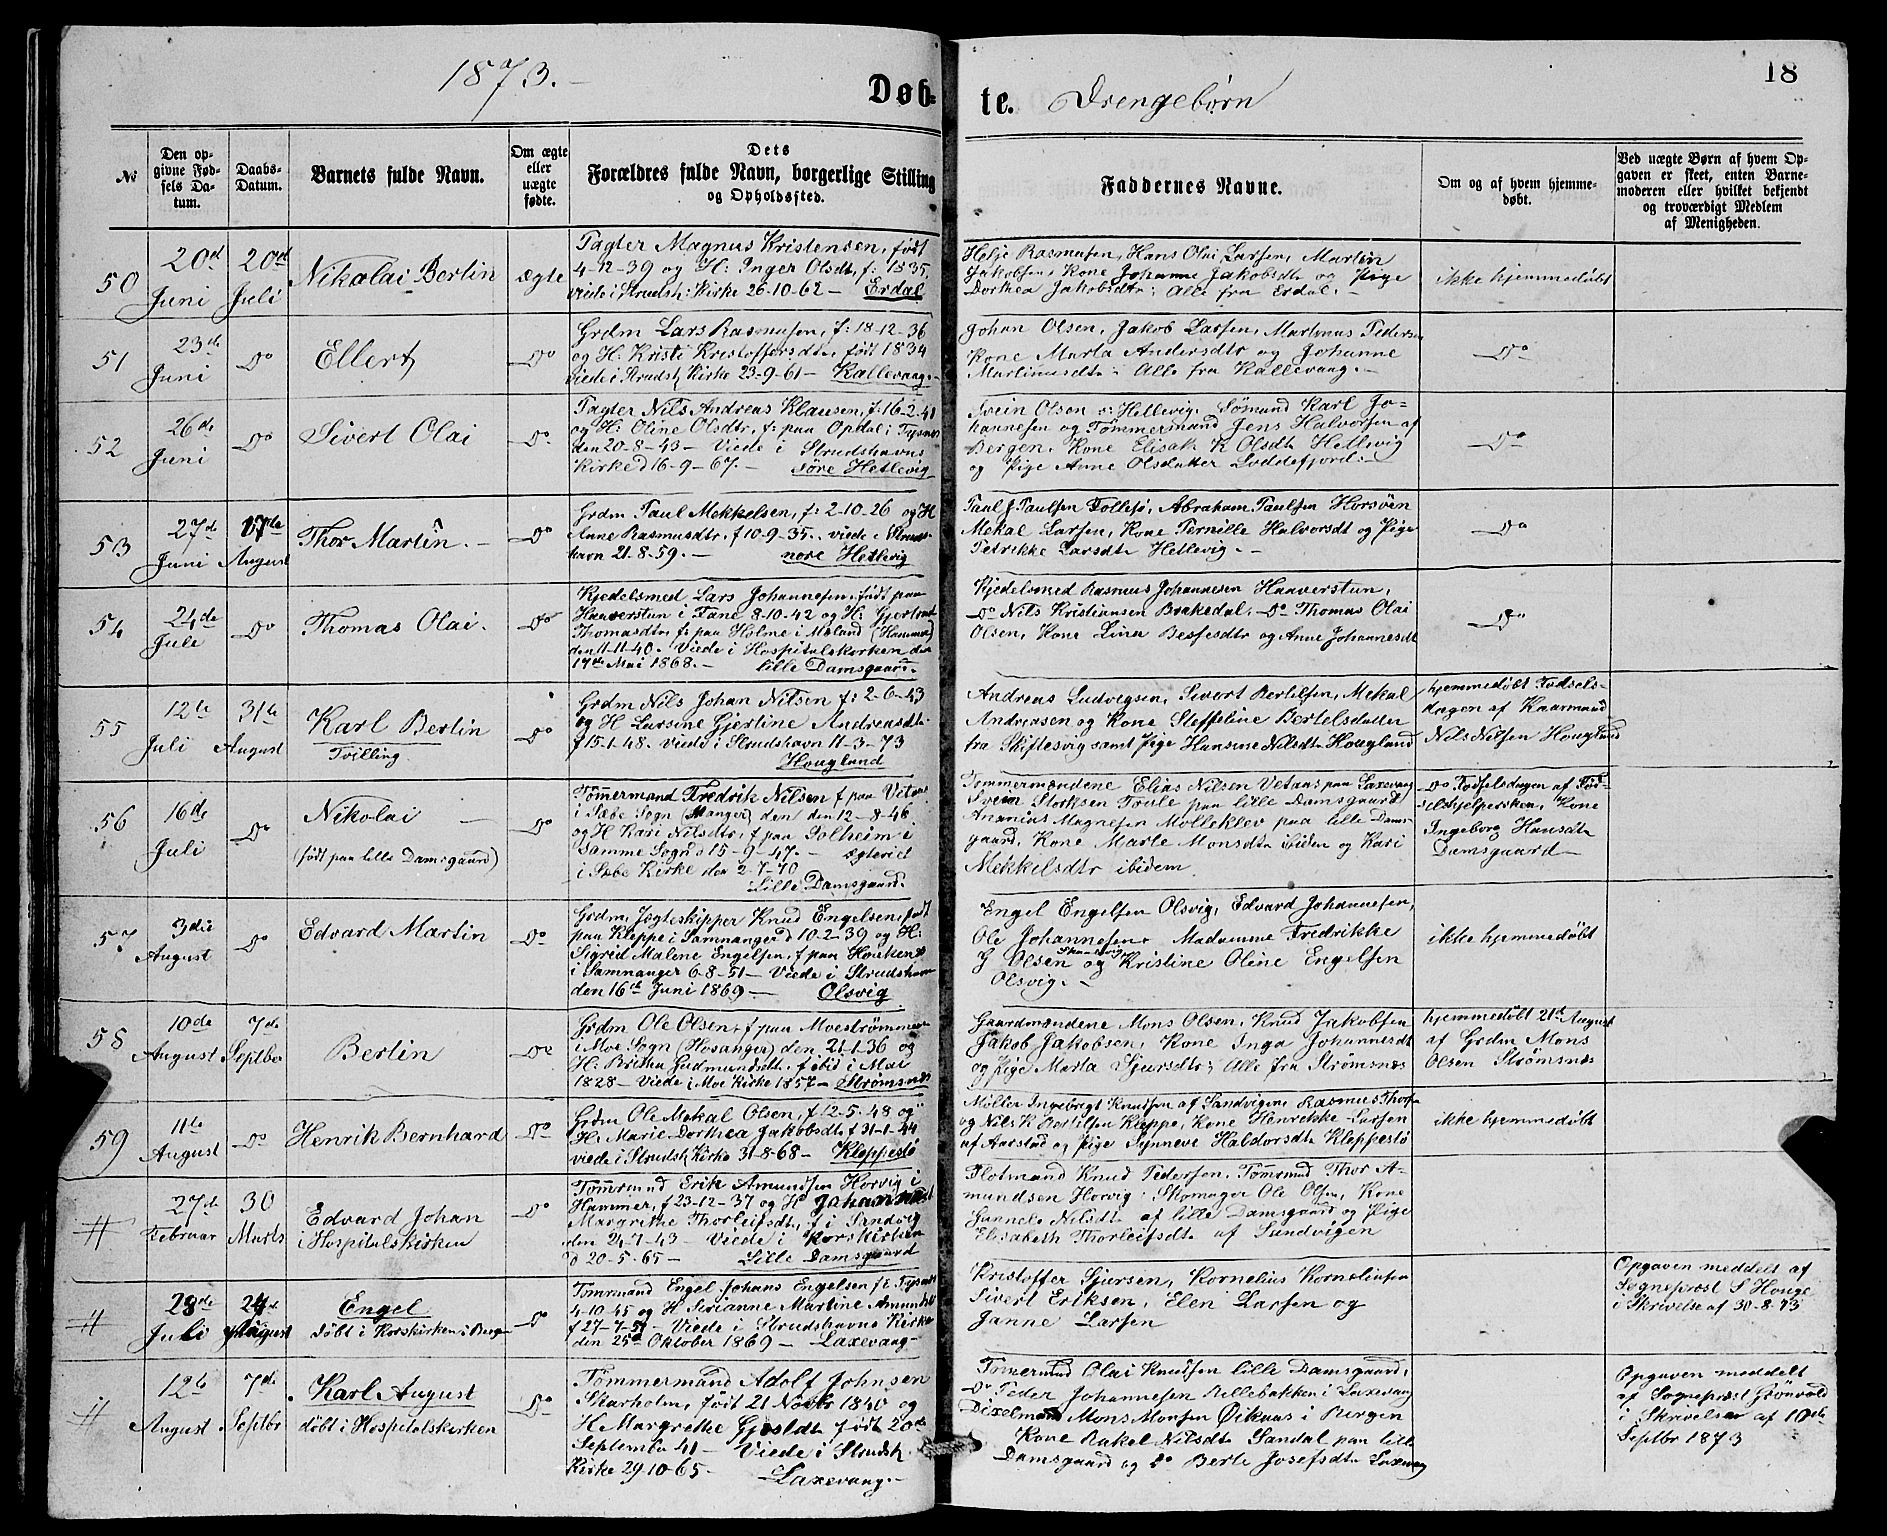 1873.-
18
Døb-
te.
Drengebørn
№
Den op-
givne Fød-
sels Da-
tum.
Daabs-
Datum.
Barnets fulde Navn.
Om ægte
eller
uægte
fødte.
Dets
Forældres fulde Navn, borgerlige Stilling
og Opholdssted.
Faddernes Navne.
Om og af hvem hjemme-
døbt.
Ved uægte Børn af hvem Op-
gaven er skeet, enten Barne-
moderen eller hvilket bekjendt
og troværdigt Medlem
af Menigheden.
50
20d
Juni
20d
Juli
Nikolai Berlin
ægte
Magnus Kristensen, født
4-12-39 og H: Inger Olsdt, f: 1835,
viede i Strudsh: Kirke 26-10-62- Erdal
Helje Rasmusen, Hans Olai Larsen, Martin
Jakobsen, Kone Johanne Jakobsdt og Pige
Dorthea Jakobsdtr; Alle fra Erdal.-
ikke hjemmedøbt
51
23de
Juni
Do
Ellert
Do
Grdm Lars Rasmusen, f: 18-12-36
og H: Kristi Kristoffersdtr, født 1834
viede i Strudsh Kirke 23-9-61- Kallevaag.-
Johan Olsen, Jakob Larsen, Martinus Peders
Kone Marta Andersdtr og Johanne
Martinusdtr: Alle fra Kallevaag.-
Do
52
26de
Juni
Do
Sivert Olai
Do
Nils Andreas Klausen, f: 16-2-41
og H: Oline Olsdtr, f: paa Opdal i Tysnes
den 20-8-43- Viede i Strudshavns
Kirke d 16-9-67.- søre Hetlevig
Svein Olsen s: Hetlevig, Sömand Karl Jo-
hannesen og Tömmermand Jens Halvorsen af
Bergen, Kone Elisab K Olsdt Hetlevig
og Pige Anne Olsdatter Loddefjord.-
Do
53
27de
Juni
17de
August
Thor Martin.-
Do
Grdm Paul Mekkelsen, f: 2-10-26 og H
Anne Rasmusdtr, f 10-9-35. viede i Struds-
havn 21-8-59.- nore Hetlevig
Paul J Paulsen Follesø, Abraham Paulsen Horsöen
Mekal Larsen, Kone Pernille Halvorsdt og Pige
Petrikke Larsdtr Hetlevig.-
Do
54
24de
Jule
Do
Thomas Olai.
Do
Kjedelsmed Lars Johannesen, født paa
Haaverstun i Fane 8-10-42 og H: Gjertrud
Thomasdtr, f: paa Holme i Meland (Hammer)
den 11-11-40. Viede i Hospitalskirken den
17de Mai 1868.- lille Damsgaard.
Kjedelsmed Rasmus Johannesen Haaverstun,
Do Nils Kristiansen Brakedal, Do Thomas Olai
Olsen, Kone Lina Besfesdtr og Anne Johannesdt
Do
55
12te
Juli
31te
August
Karl Berlin
Tvilling.
Do
Grdm Nils Johan Nilsen f: 2-6-43
og H Larsine Gjertine Andreasdt
f 15-1-48. Viede i Strudshavn 11-3-73
Hougland
Andreas Ludvegsen, Sivert Bertelsen, Mekal
Andreasen og Kone Steffeline Bertelsdatter
fra Skiftesvig samt Pige Hansine Nilsdt Hougland
hjemmedøbt Fødsels-
dagen af Kaarmand
Nils Nilsen Hougland
56
16de
Juli
Do
Nikolai -
(født paa lille Damsgaard)
Do
Tömmermand Fredrik Nilsen f paa Vetaas
i Sæbe Sogn (Manger) den 12-8-46
og H Kari Nilsdtr, f paa Solheim i
samme Sogn d 15-9-47.- ægteviet
i Sæbe Kirke den 2-7-70
Lille Damsgaard.
Tömmermændene Elias Nilsen Vetaas paa Laxevaag
Svein Storksen Toule paa lille Damsgaard,
Ananias Magnesen Mölleklev paa lille Dams-
gaard, Kone Marte Monsdt ibidem og Kari
Mekkelsdtr ibidem.
Do Fødselsdagen af Fød-
selshjelpersken, Kone
Ingeborg Hansdtr
Damsgaard-
57
3die
August
Do
Edvard Martin
Do
Grdm, Jægteskipper Knud Engelsen, født
paa Kleppe i Samnanger d 10-2-39 og H:
Sigrid Malene Engelsen, f paa
i Samnanger 6-8-51- Viede i Strudshavn
den 16de Juni 1869- Olsvig
Engel Engelsen Olsvig, Edvard Johannesen,
Ole Johannesen, Madamme Fredrikke
G Olsen og Kristine Oline Engelsen
Olsvig.-
ikke hjemmedøbt
58
10de
August
7de
Septbr
Berlin
Do
Grdm Ole Olsen, f paa Moeströmmen
i Moe Sogn (Hosanger) den 21-1-36 og
H: Britha Gudmundsdt, f ibid i Mai
1828- Viede i Moe Kirke 1857- Strømsnæs
Gaardmændene Mons Olsen, Knud Jakobsen
Jakob Jakobsen, Kone Inga Johannesdt
og Pige Marta Sjursdtr; Alle fra Strømsnæs
hjemmedøbt 21de August
af Grdm Mons
Olsen Strømsnæs
59
11te
August
Do
Henrik Bernhard
Do
Grdm Ole Mekal Olsen, f 12-5-48 og
H: Marie Dorthea Jakobsdt f 31-1-44
viede i Strudsh Kirke 31-8-68- Kleppestø
Møller Ingebregt Knudsen af Sandvigen, Rasmus Thors
og Nils K Bertelsen Kleppe, Kone Henrikke Larsen
af Aarstad og Pige Synneve Haldorsdt Kleppestø
ikke hjemmedøbt
#
27de
Februar
30
Marts
Edvard Johan
i Hospitalskirken
Do
Tömrmnd Erik Amundsen Horvig i
Hammer, f 23-12-37 og H Johanna
Margrethe Thorleifsdt, f i Sandvig
den 24-1-43- Viede i Korskirken
d 20-5-65- Lille Damsgaard
Flotmand Knud Pedersen, Tömrmnd Thor A-
mundsen Horvig: Skomager Ole Olsen, Kone
Gunnele Nilsdt af lille Damsgaard og Pige
Elisabeth Thorleifsdt af Sandvigen
#
28de
Juli
24de
August
Engel
døbt i Korskirken i Bergen
Do
Tömrmnd Engel Johans Engelsen f i Tysnes
4-10-45 og H Sirianne Martine Amundsdt
f 27-7-51- Viede i Strudshavns Kirke
den 25de Oktober 1869- Laxevaag-
Kristoffer Sjursen, Kornelius Korneliusen
Sivert Eriksen, Elen Larsen og
Janne Larsen
Opgaven meddelt af
Sogneprest S Houge
i Skrivelse af 30-8-73
#
12te
August
7de
Septbr
Karl August
døbt i Hospitalskirken
Do
Tömmermand Adolf Johnsen
Skarholm, født 21 Novbr 1840 og
H Margrethe Gjertdt født 20de
September 41- Viede i Strudsh
Kirke 29-10-65- Laxevaag.-
Tmrmnd Olai Knudsen lille Damsgaard,
Do Peder Johannesen Rillebakken i Laxevaag
Dixelmand Mons Monsen Öiknas i Bergen
Kone Rakel Nilsdt Sandal paa lille
Damsgaard og Do Berte Josefsdt Laxevaag
Opgaven meddelt
af Sogneprest Grönvold
i Skrivelse af 10de
Septbr 1873